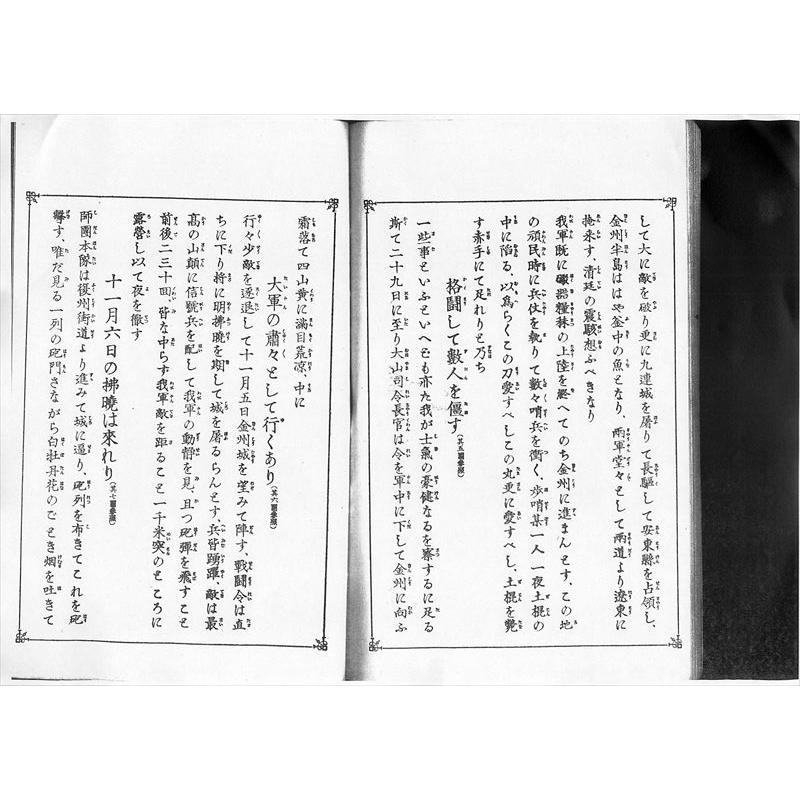 して大に敵を破り更に九連城を屠りて長驅して安東縣を占領し、
金州半島ははや釜中の魚となり、兩軍堂々として兩道より遼東に
掩来す、清廷の震駭想ふべきなり
我軍既に礮器糧秣の上陸を終へてのち金州に進まんとす、この地
の頑民時に兵仗を執りて數々哨兵を衝く、歩哨某一人一夜土棍の
中に陷る、以爲らくこの刀愛すべしこの丸更に愛すべし、土棍を斃
す赤手にて足れりと乃ち
格鬪して數人を僵す(其五圖參照)
一些事といふといへども亦た我が士氣の豪健なるを察するに足る
斯て二十九日に至り大山司令長官は令を軍中に下して金州に向ふ
霜落て四山黄に滿目荒凉、中に
大軍の肅々として行くあり(其六圖參照)
行々少敵を逐退して十一月五日金州城を望みて陣す、戰鬪令は直
ちに下り將に明拂曉を期して城を屠るらんとす、兵皆踴躍、敵は最
高の山巓に信號兵を配して我軍の動靜を見、且つ砲彈を飛すこと
前後二三十回皆な中らす我軍敵を距ること一千米突のところに
露營し以て夜を徹す
十一月六日の拂曉は來れり(其七圖參照)
師團本隊は復州街道より進みて城に逼り、砲列を布きてこれを砲
擊す、唯だ見る一列の砲門さながら白牡丹花のごとき烟を吐きて